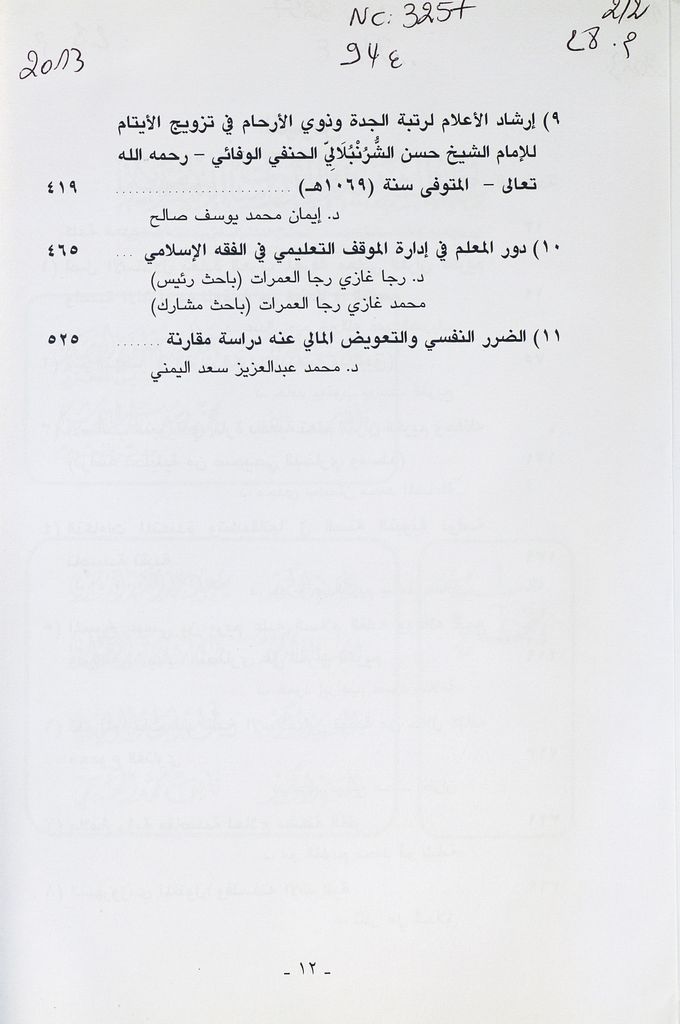 NC: 325+
2/2
2013
94 ع
٩) إرشاد الأعلام لرتبة الجدة وذوي الأرحام في تزويج الأيتام
للإمام الشيخ حسن الشُّرُنْبُلَالِيِّ الحنفي الوفائي – رحمه الله
تعالى – المتوفى سنة (١٠٦٩هـ) ............................ ٤١٩
د. إيمان محمد يوسف صالح
١٠) دور المعلم في إدارة الموقف التعليمي في الفقه الإسلامي ... ٤٦٥
د. رجا غازي رجا العمرات (باحث رئيس)
محمد غازي رجا العمرات (باحث مشارك)
١١) الضرر النفسي والتعويض المالي عنه دراسة مقارنة ....... ٥٢٥
د. محمد عبدالعزيز سعد اليمني
- ١٢ -